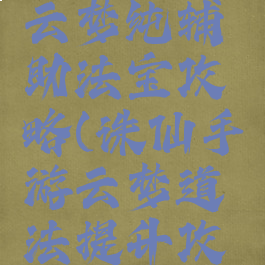 云梦纯辅
助法宝攻
略(诛仙手
游云梦道
法提升攻